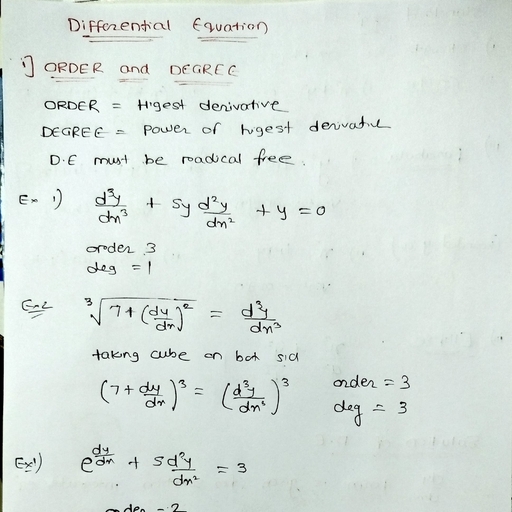 Differential Equation
1] ORDER and DEGREE
ORDER = Higest derivative
DEGREE = Power of higest derivative
D.E must be roadical free.
Ex 1) d³y/dx³ + 5y d²y/dx² + y = 0
order 3
deg = 1
Ex2 ³√(7+(dy/dx)²) = d³y/dx³
taking cube on bot sid
(7+dy/dx)³ = (d³y/dx³)³ order = 3
deg = 3
Ex1) e^(dy/dx) + 5 d²y/dx² = 3
order = 2